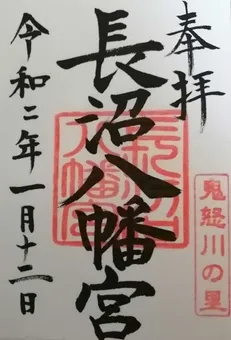 奉拝
長沼八幡宮
令和二年一月十二日
長沼八幡宮
鬼怒川の里